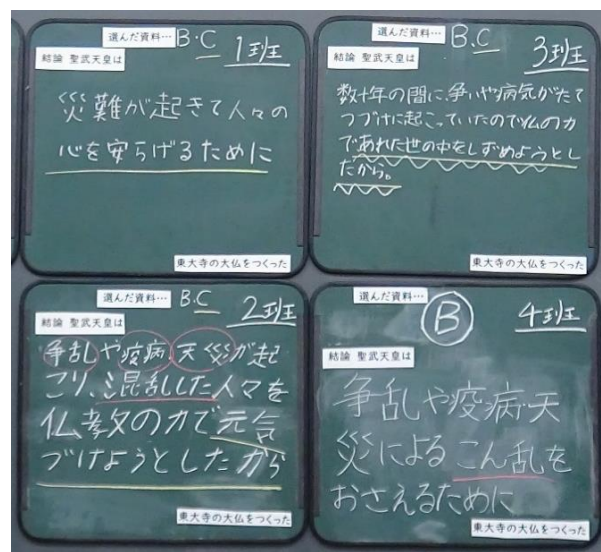 選んだ資料… B・C 1班
結論 聖武天皇は
災難が起きて人々の
心を安らげるために
東大寺の大仏をつくった
選んだ資料… B.C 3班
結論 聖武天皇は
数十年の間に、争いや病気がたて
つづけに起こっていたので仏の力
であれた世の中をしずめようとし
たから。
東大寺の大仏をつくった
選んだ資料… B.C 2班
結論 聖武天皇は
争乱や疫病、天災が起
こり、混乱した人々を
仏教の力で元気
づけようとしたから
東大寺の大仏をつくった
選んだ資料… B 4班
結論 聖武天皇は
争乱や疫病・天
災によるこん乱を
おさえるために
東大寺の大仏をつくった